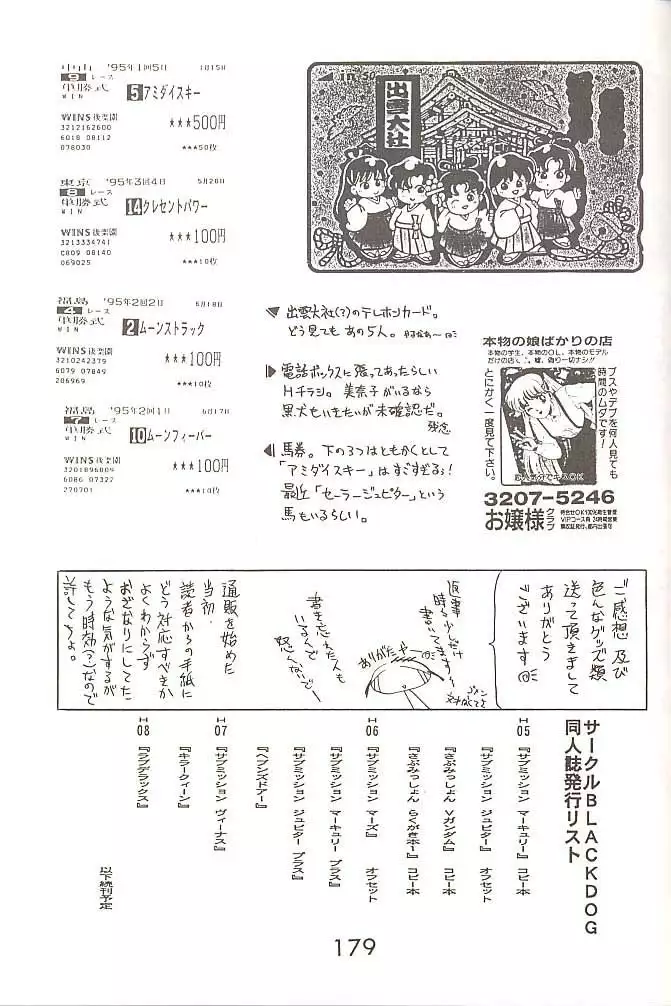 中山 '95年1回5日 1月15日
9レース
単勝式 WIN
5 アミダイスキー
WINS後楽園
★★★500円
3212162600
6018 08112
078030 ★★★50枚
東京 '95年3回4日 5月28日
8レース
単勝式 WIN
14 クレセントパワー
WINS後楽園
★★★100円
3213334741
C809 08140
069025 ★★★10枚
福島 '95年2回2日 6月18日
4レース
単勝式 WIN
2 ムーンストラック
WINS後楽園
★★★100円
3210242379
6079 07849
206969 ★★★10枚
福島 '95年2回1日 6月17日
7レース
単勝式 WIN
10 ムーンフィーバー
WINS後楽園
★★★100円
3201896804
6086 07327
270701 ★★★10枚
50
出雲大社
出雲大社(?)のテレホンカード。
どう見てもあの5人。
電話ボックスに張ってあったらしい
Hチラシ。美奈子がいるなら
黒犬もいきたいが未確認だ。
残念
馬券。下の3つはともかくとして
「アミダイスキー」はすごすぎるぅ!
最近「セーラージュピター」という
馬もいるらしい。
本物の娘ばかりの店
本物の学生、本物のOL、本物のモデル
だけの店く、嘘、偽り一切ナシ!!
ブスやデブを何人見ても
時間のムダです!
とにかく一度見て下さい。
3207-5246
お嬢様クラブ
ご感想 及び
色んなグッズ類
送って頂きまして
ありがとう
ございます
返事
時々少しだけ
書いてますョ
ありがたや
書き忘れた人も
いるくで
怒くないで
通販を始めた
当初、
読者からの手紙に
どう対応すべきか
よくわからず
おざなりにしてた
ような気がするが
もう時効(?)なので
許してちょ。
サークルBLACKDOG
同人誌発行リスト
H05 『サブミッション マーキュリー』 コピー本
『サブミッション ジュピター』 オフセット
『さぶみっしょん Vガンダム』 コピー本
『さぶみっしょん らくがきホー』 コピー本
H06 『サブミッション マーズ』 オフセット
『サブミッション マーキュリー プラス』
『サブミッション ジュピター プラス』
『ヘブンズドアー』
H07 『サブミッション ヴィーナス』
『キラークィーン』
H08 『ラブデラックス』
以下続刊予定
179